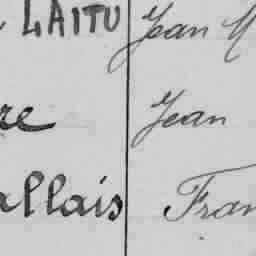 LAITU Jean M
re Jean
allais Fran